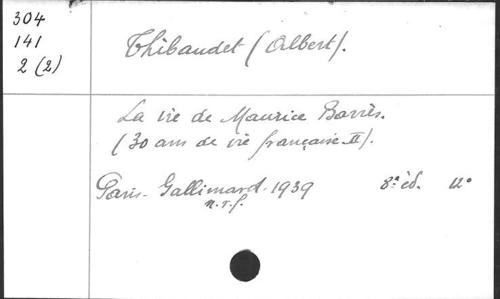 304
141
2 (2)
Thibaudet (Albert).
La vie de Maurice Barrès.
(30 ans de vie française II).
Paris - Gallimard - 1939 8ª éd. 12º
n.r.f.